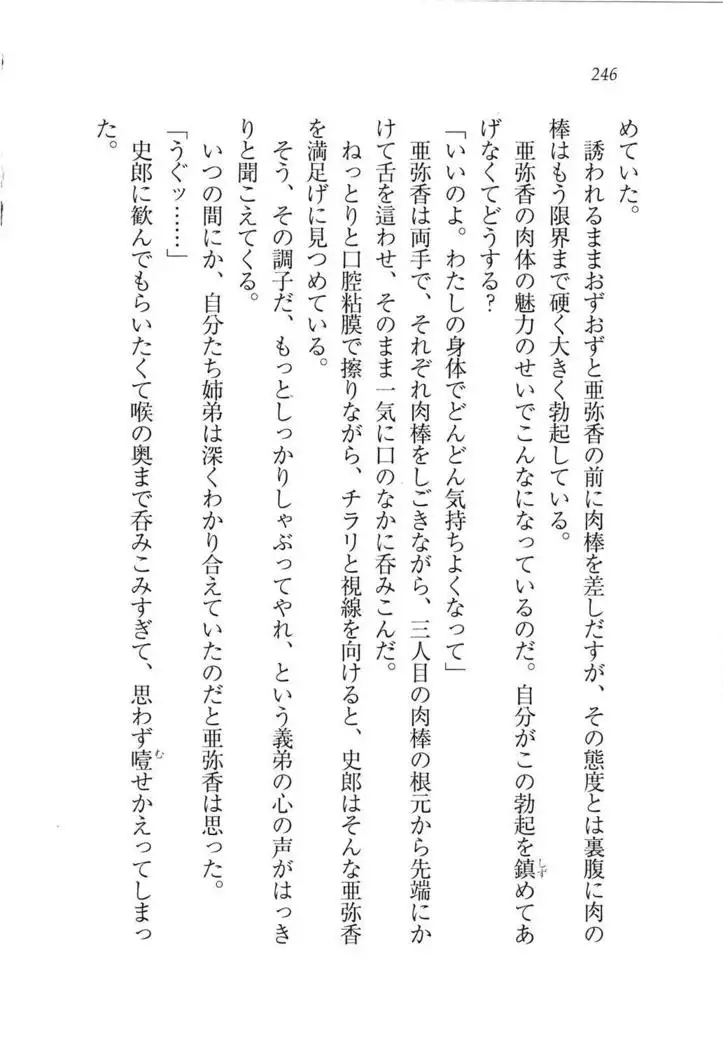 246
めていた。
誘われるままおずおずと亜弥香の前に肉棒を差しだすが、その態度とは裏腹に肉の
棒はもう限界まで硬く大きく勃起している。
亜弥香の肉体の魅力のせいでこんなになっているのだ。自分がこの勃起を鎮めてあ
げなくてどうする?
「いいのよ。わたしの身体でどんどん気持ちよくなって」
亜弥香は両手で、それぞれ肉棒をしごきながら、三人目の肉棒の根元から先端にか
けて舌を這わせ、そのまま一気に口のなかに呑みこんだ。
ねっとりと口腔粘膜で擦りながら、チラリと視線を向けると、史郎はそんな亜弥香
を満足げに見つめている。
そう、その調子だ、もっとしっかりしゃぶってやれ、という義弟の心の声がはっき
りと聞こえてくる。
いつの間にか、自分たち姉弟は深くわかり合えていたのだと亜弥香は思った。
「うぐッ……」
史郎に歓んでもらいたくて喉の奥まで呑みこみすぎて、思わず噎せかえってしまっ
た。